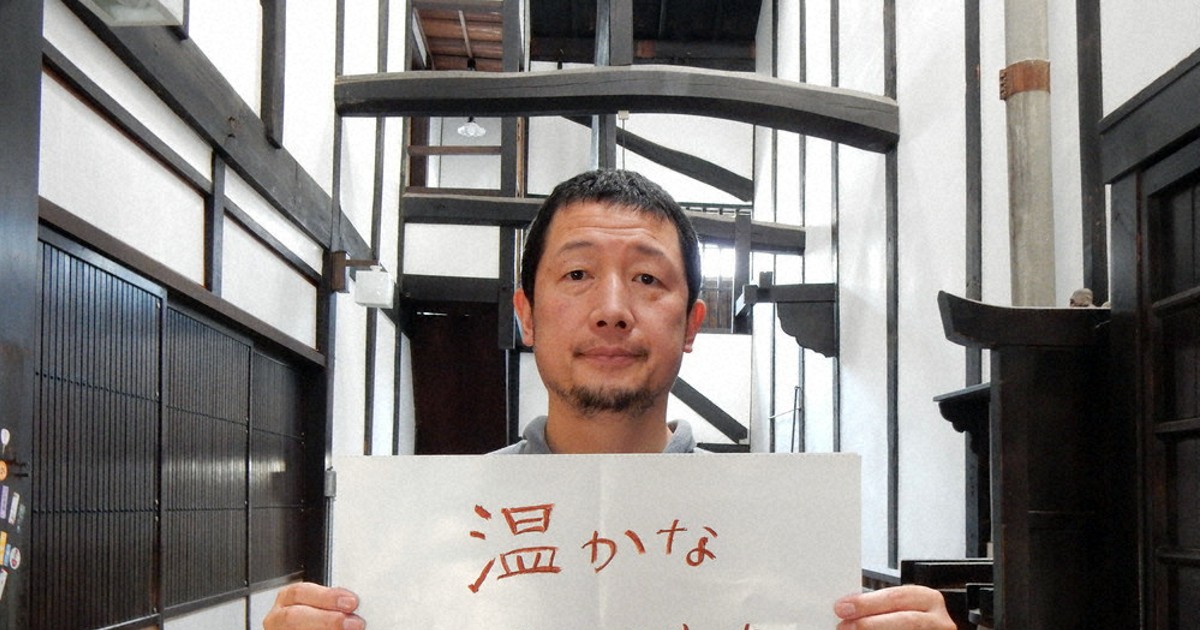 温かな